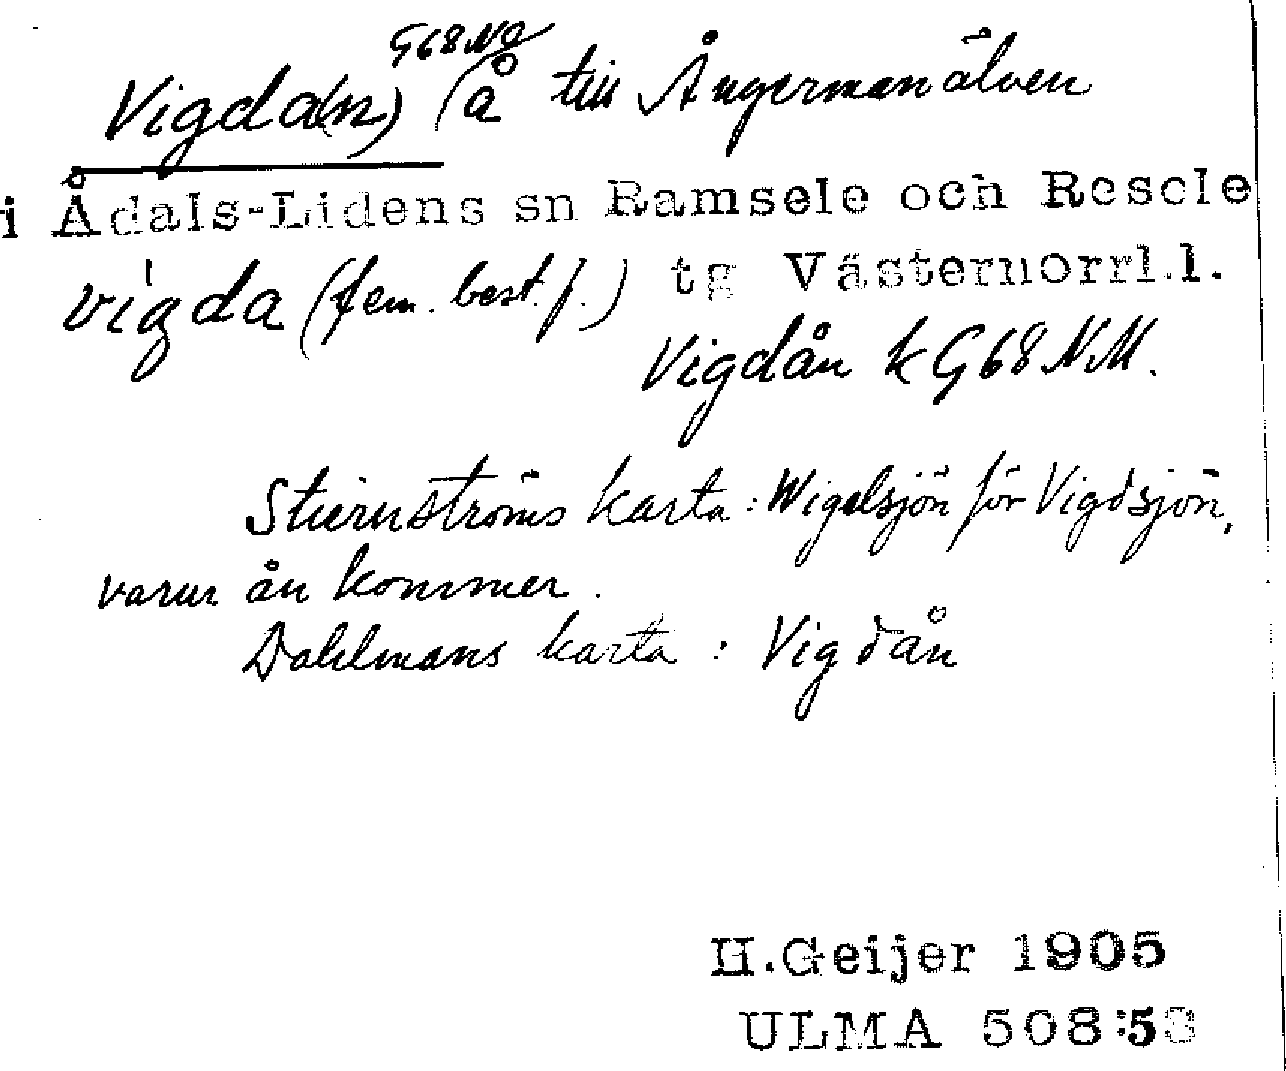 G68 NO
Vigda(n) (å till Ångermanälven
i Ådals-Lidens sn Ramsele och Resele
vigda (fem. best. f.) tg Västernorrl.l.
Vigdån k G68 NM.
Stiernströms karta: Wigelsjön för Vigdsjön,
varur ån kommer.
Dahlmans karta: Vigdån
H.Geijer 1905
ULMA 508:53